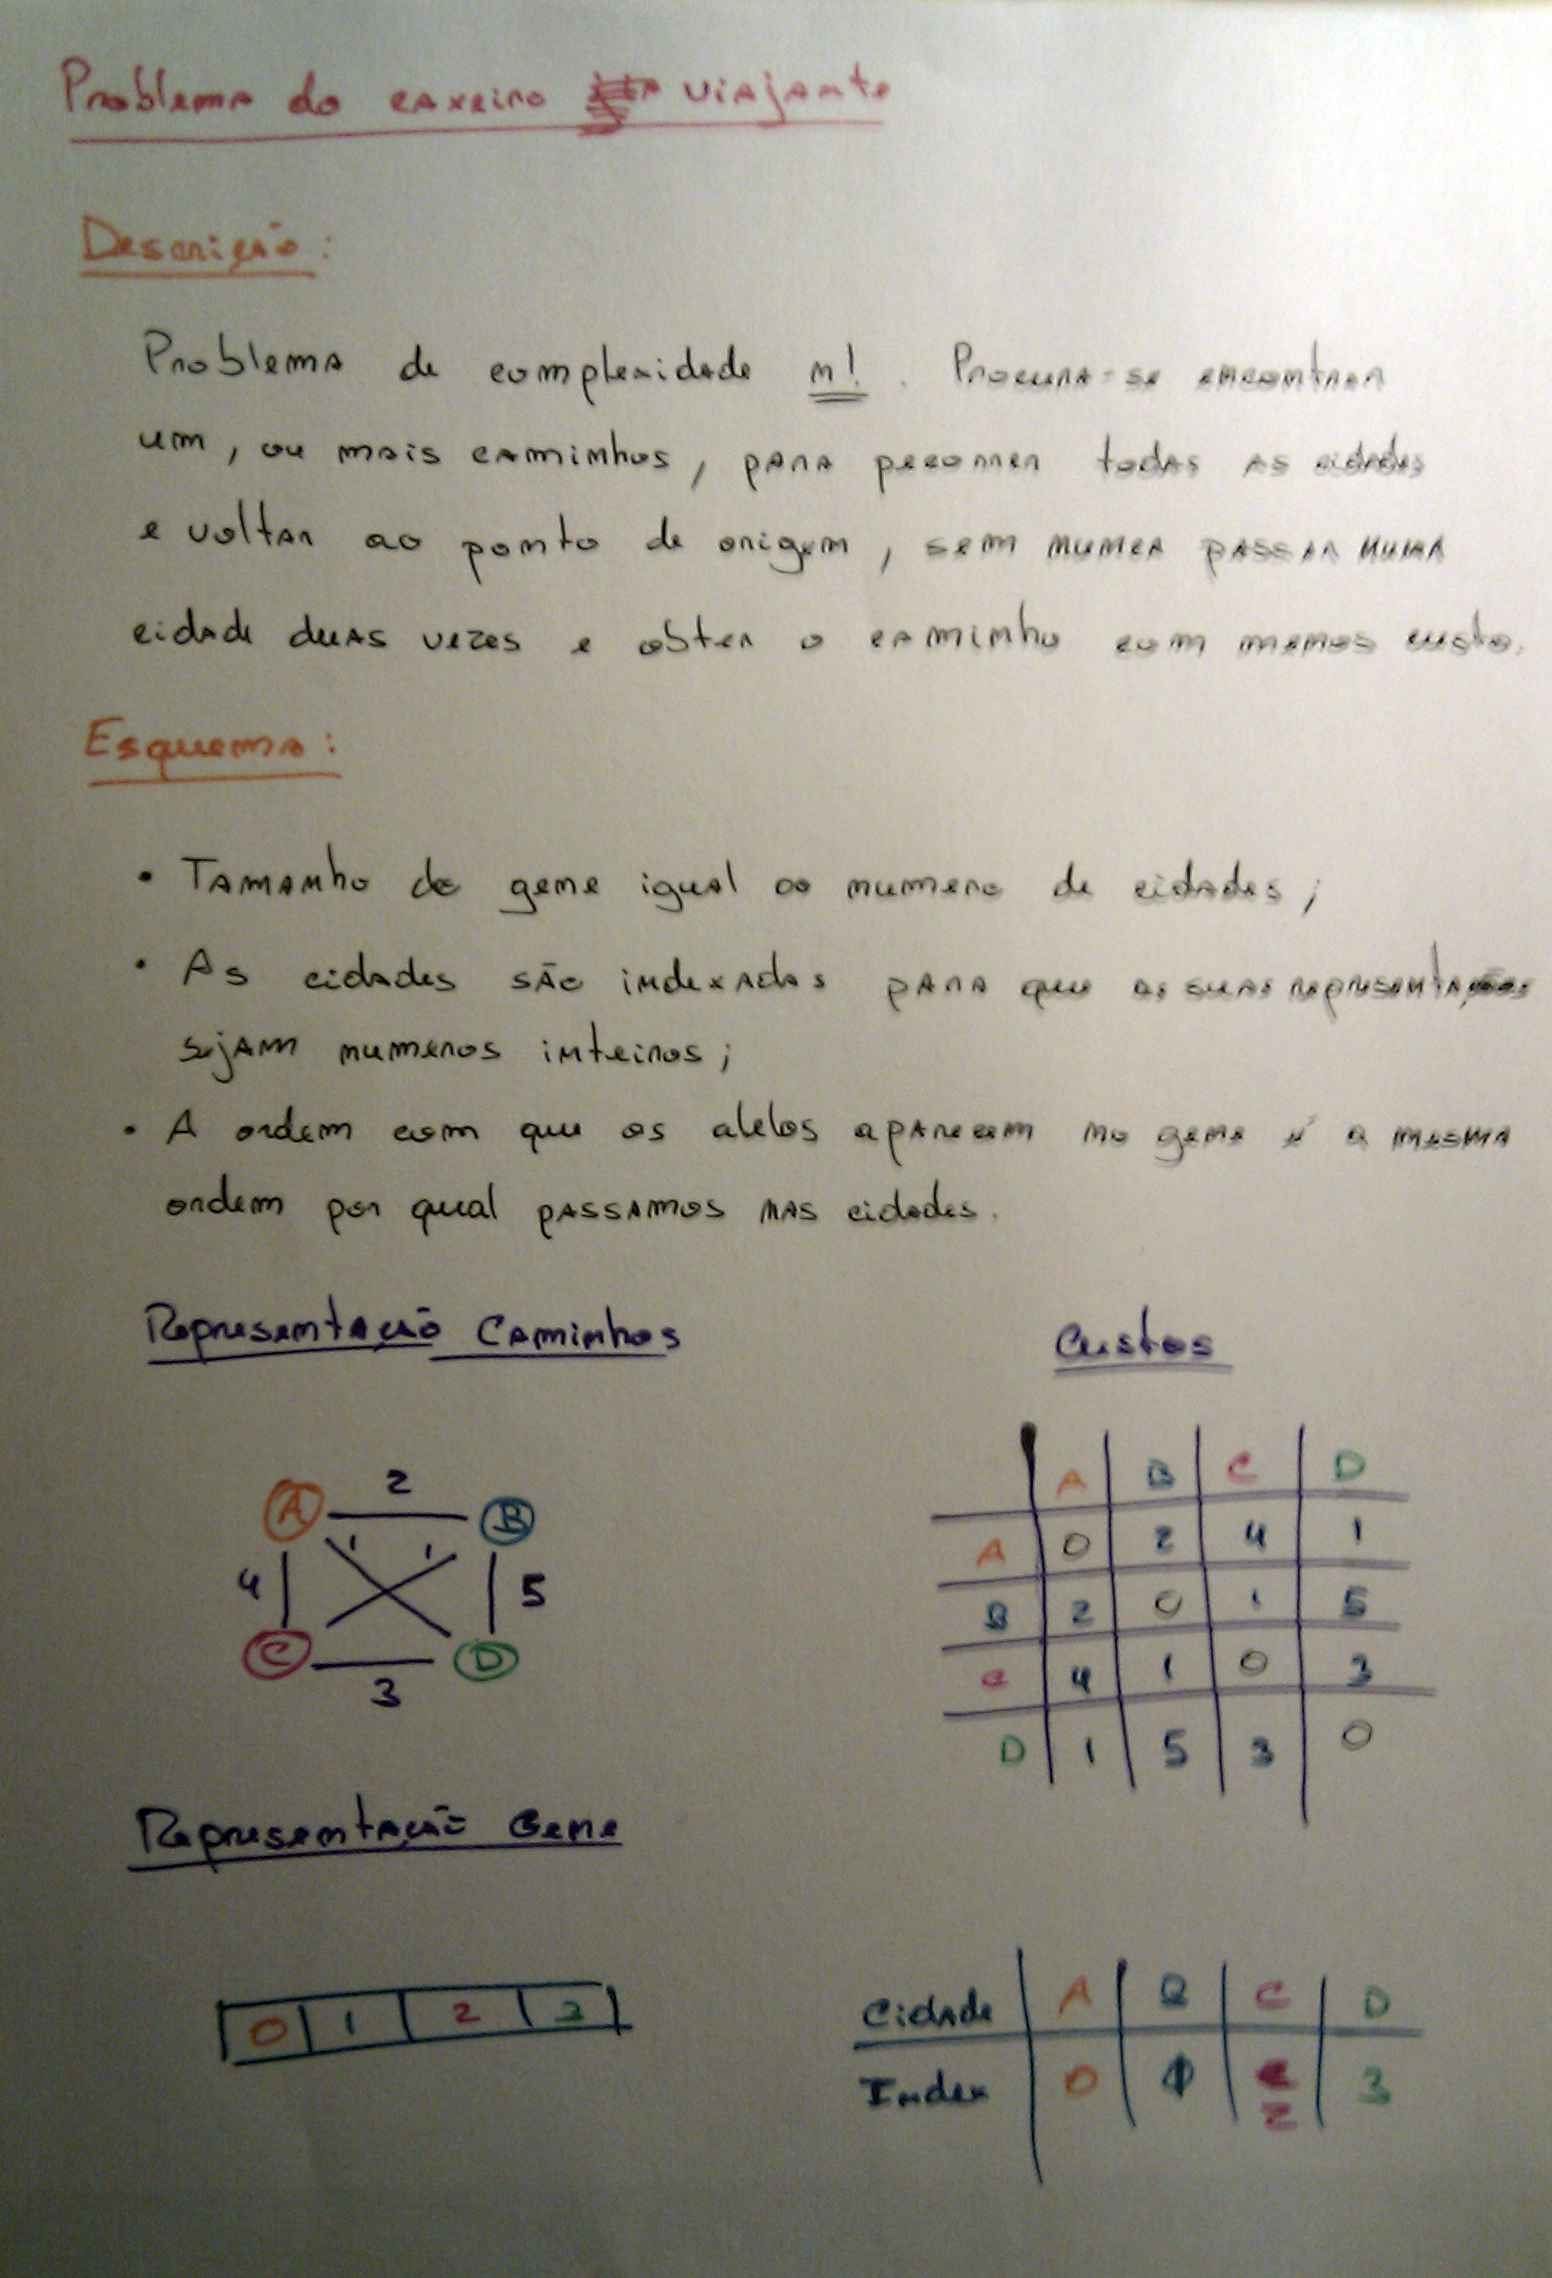 Problema do caxeiro viajante
Descrição:
Problema de complexidade n!. Procura-se encontrar
um, ou mais caminhos, para pecorrer todas as cidades
e voltar ao ponto de origem, sem nunca passar numa
cidade duas vezes e obter o caminho com menos custo.
Esquema:
• Tamanho do gene igual ao numero de cidades;
• As cidades são indexadas para que as suas representações
sejam numeros inteiros;
• A ordem com que os alelos aparecem no gene é a mesma
ordem por qual passamos nas cidades.
Representação Caminhos
2
A B
1 1
4 5
C D
3
Custos
A B C D
A 0 2 4 1
B 2 0 1 5
C 4 1 0 3
D 1 5 3 0
Representação Gene
0 1 2 3
Cidade A B C D
Index 0 1 2 3